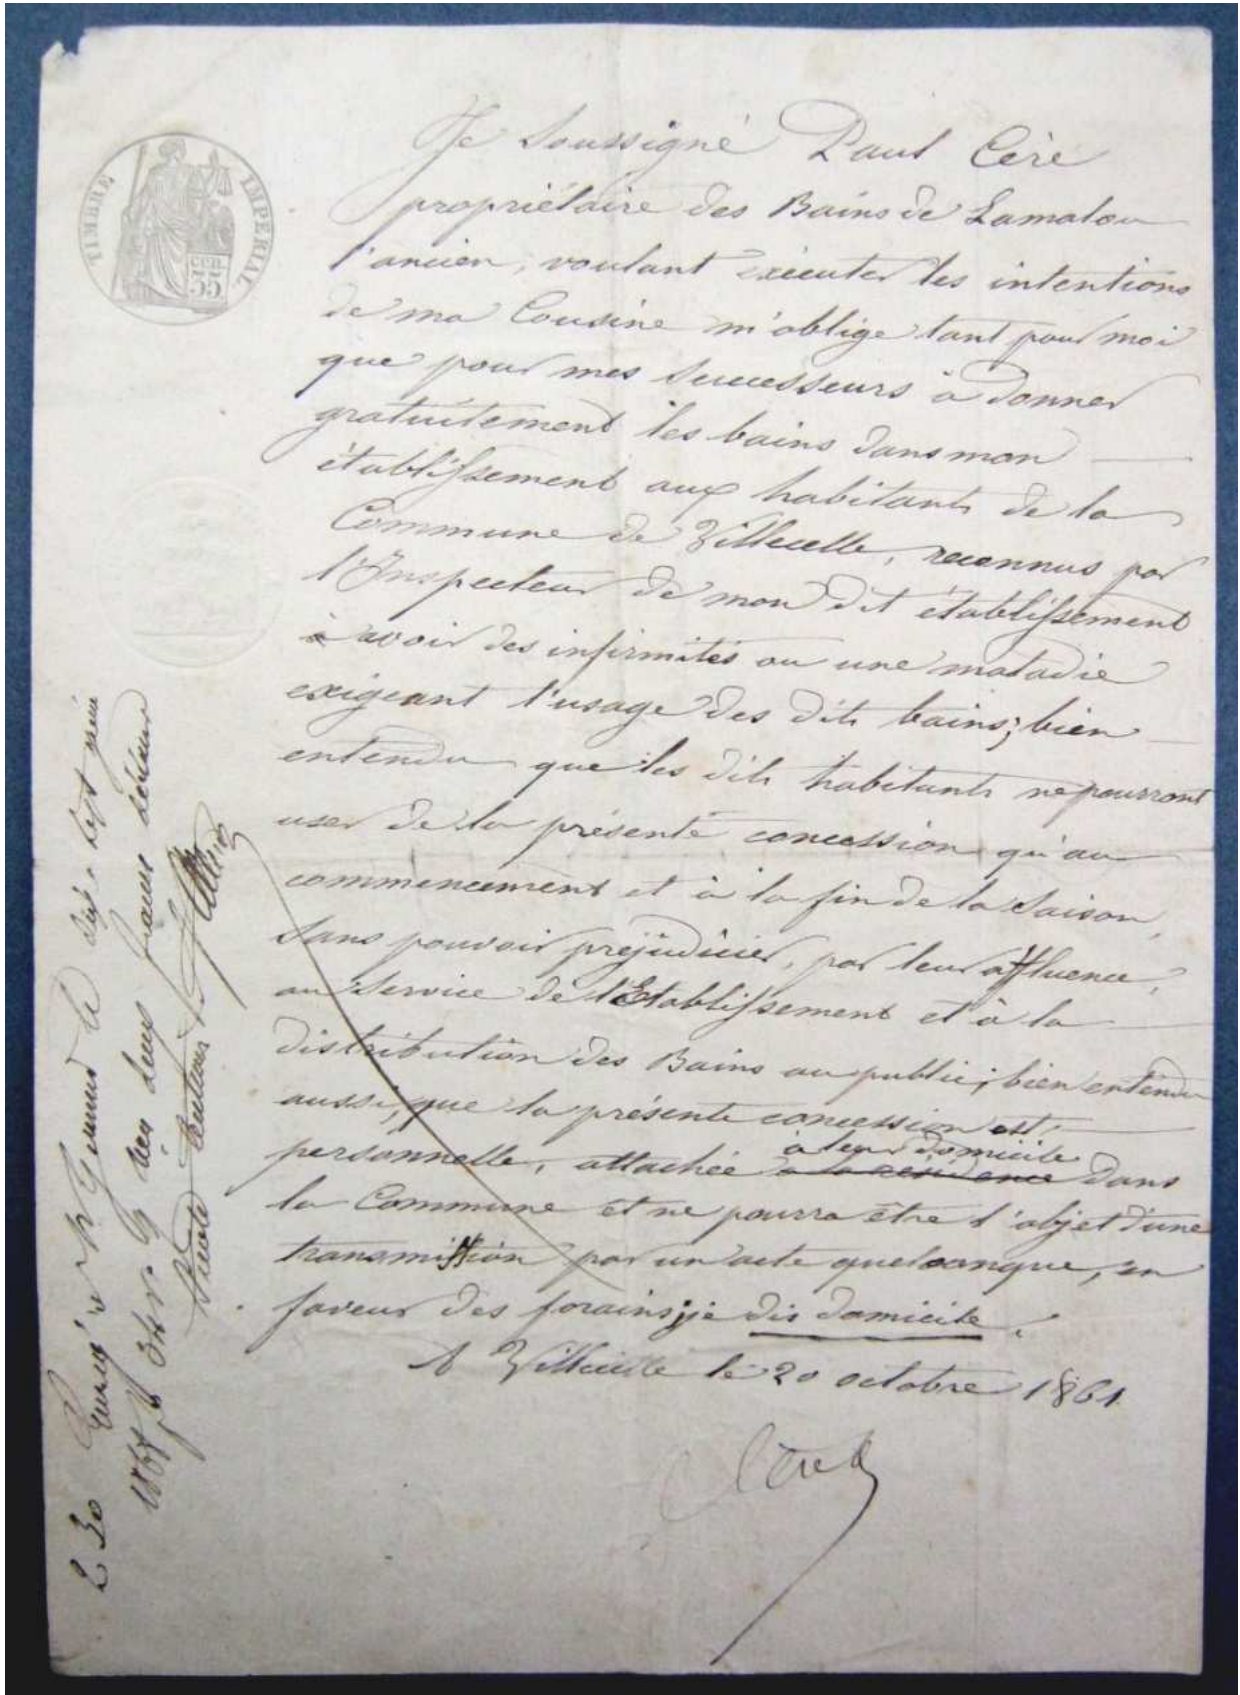 TIMBRE IMPERIAL
CEN.
35
Je Soussigné Paul Cère
propriétaire des Bains de Lamalou
l'ancien, voulant exécuter les intentions
de ma Cousine m'oblige tant pour moi
que pour mes Successeurs à donner
gratuitement les bains dans mon
établissement aux habitants de la
Commune de Villecelle, reconnus par
l'Inspecteur de mon dit établissement
à avoir des infirmités ou une maladie
exigeant l'usage des dits bains; bien
entendu que les dits habitants ne pourront
user de la présente concession qu'au
commencement et à la fin de la Saison,
Sans pouvoir préjudicier, par leur affluence,
au Service de l'Etablissement et à la
distribution des Bains au public; bien entendu
aussi, que la présente concession est
personnelle, attachée à la résidence à leur domicile dans
la Commune et ne pourra être l'objet d'une
transmission par un acte quelconque, en
faveur des forains; je dis domicile.
A Villecelle le 20 octobre 1861
Cère
2 30 Enregistré le dix-sept
1867 f° 34 . 9 deux francs